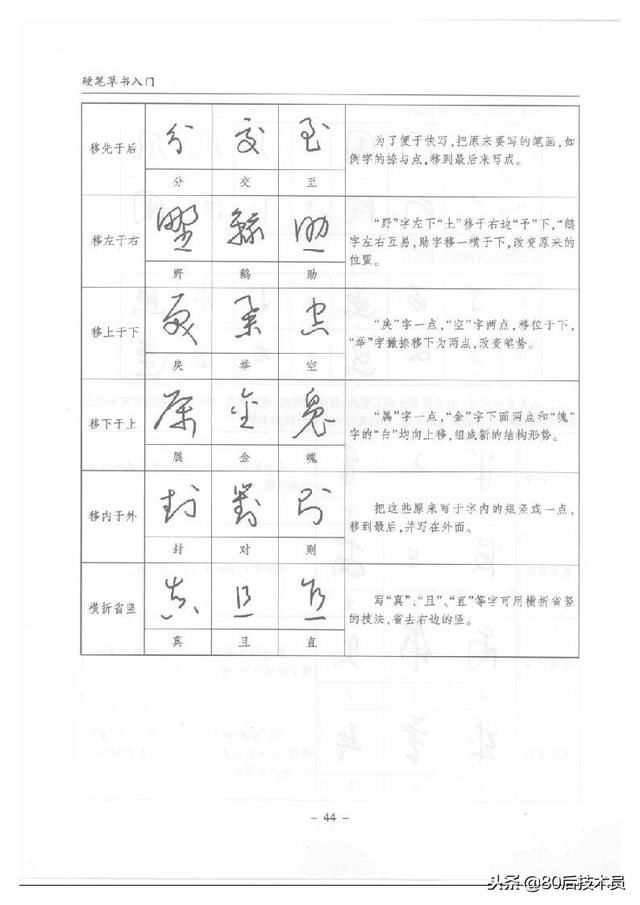 硬笔草书入门
移先于后
分 交 至
为了便于快写,把原来要写的笔画,如
例字的捺与点,移到最后来写成。
移左于右
野 鹤 助
“野”字左下“土”移于右边“予”下,“鹤
字左右互易,助字移一横于下,改变原来的
位置。
移上于下
戾 举 空
“戾”字一点,“空”字两点,移位于下,
“举”字撇捺移下为两点,改变笔势。
移下于上
属 金 魂
“属”字一点,“金”字下面两点和“魂”
字的“台”均向上移,组成新的结构形势。
移内于外
封 对 则
把这些原来写于字内的短竖或一点,
移到最后,并写在外面。
横折省竖
真 且 直
写“真”、“且”、“直”等字可用横折省竖
的技法,省去右边的竖。
- 44 -
头条@80后技术员